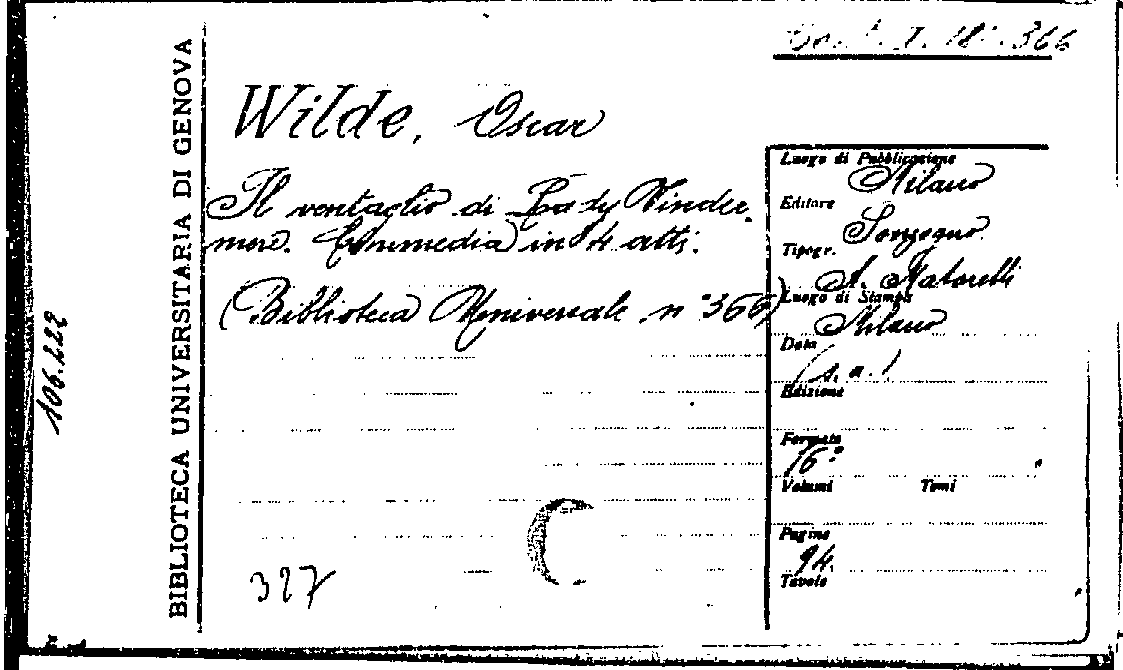 BIBLIOTECA UNIVERSITARIA DI GENOVA
106.222
I. 18°. 366
Wilde, Oscar
Il ventaglio di Lady Vinder-
mere. Commedia in 4 atti.
(Biblioteca Universale n° 366)
327
Luogo di Pubblicazione
Milano
Editore
Sonzogno
Tipogr.
A. Matarelli
Luogo di Stampa
Milano
Data
(s. a.)
Edizione
Formato
16°
Volumi Tomi
Pagine
94.
Tavole